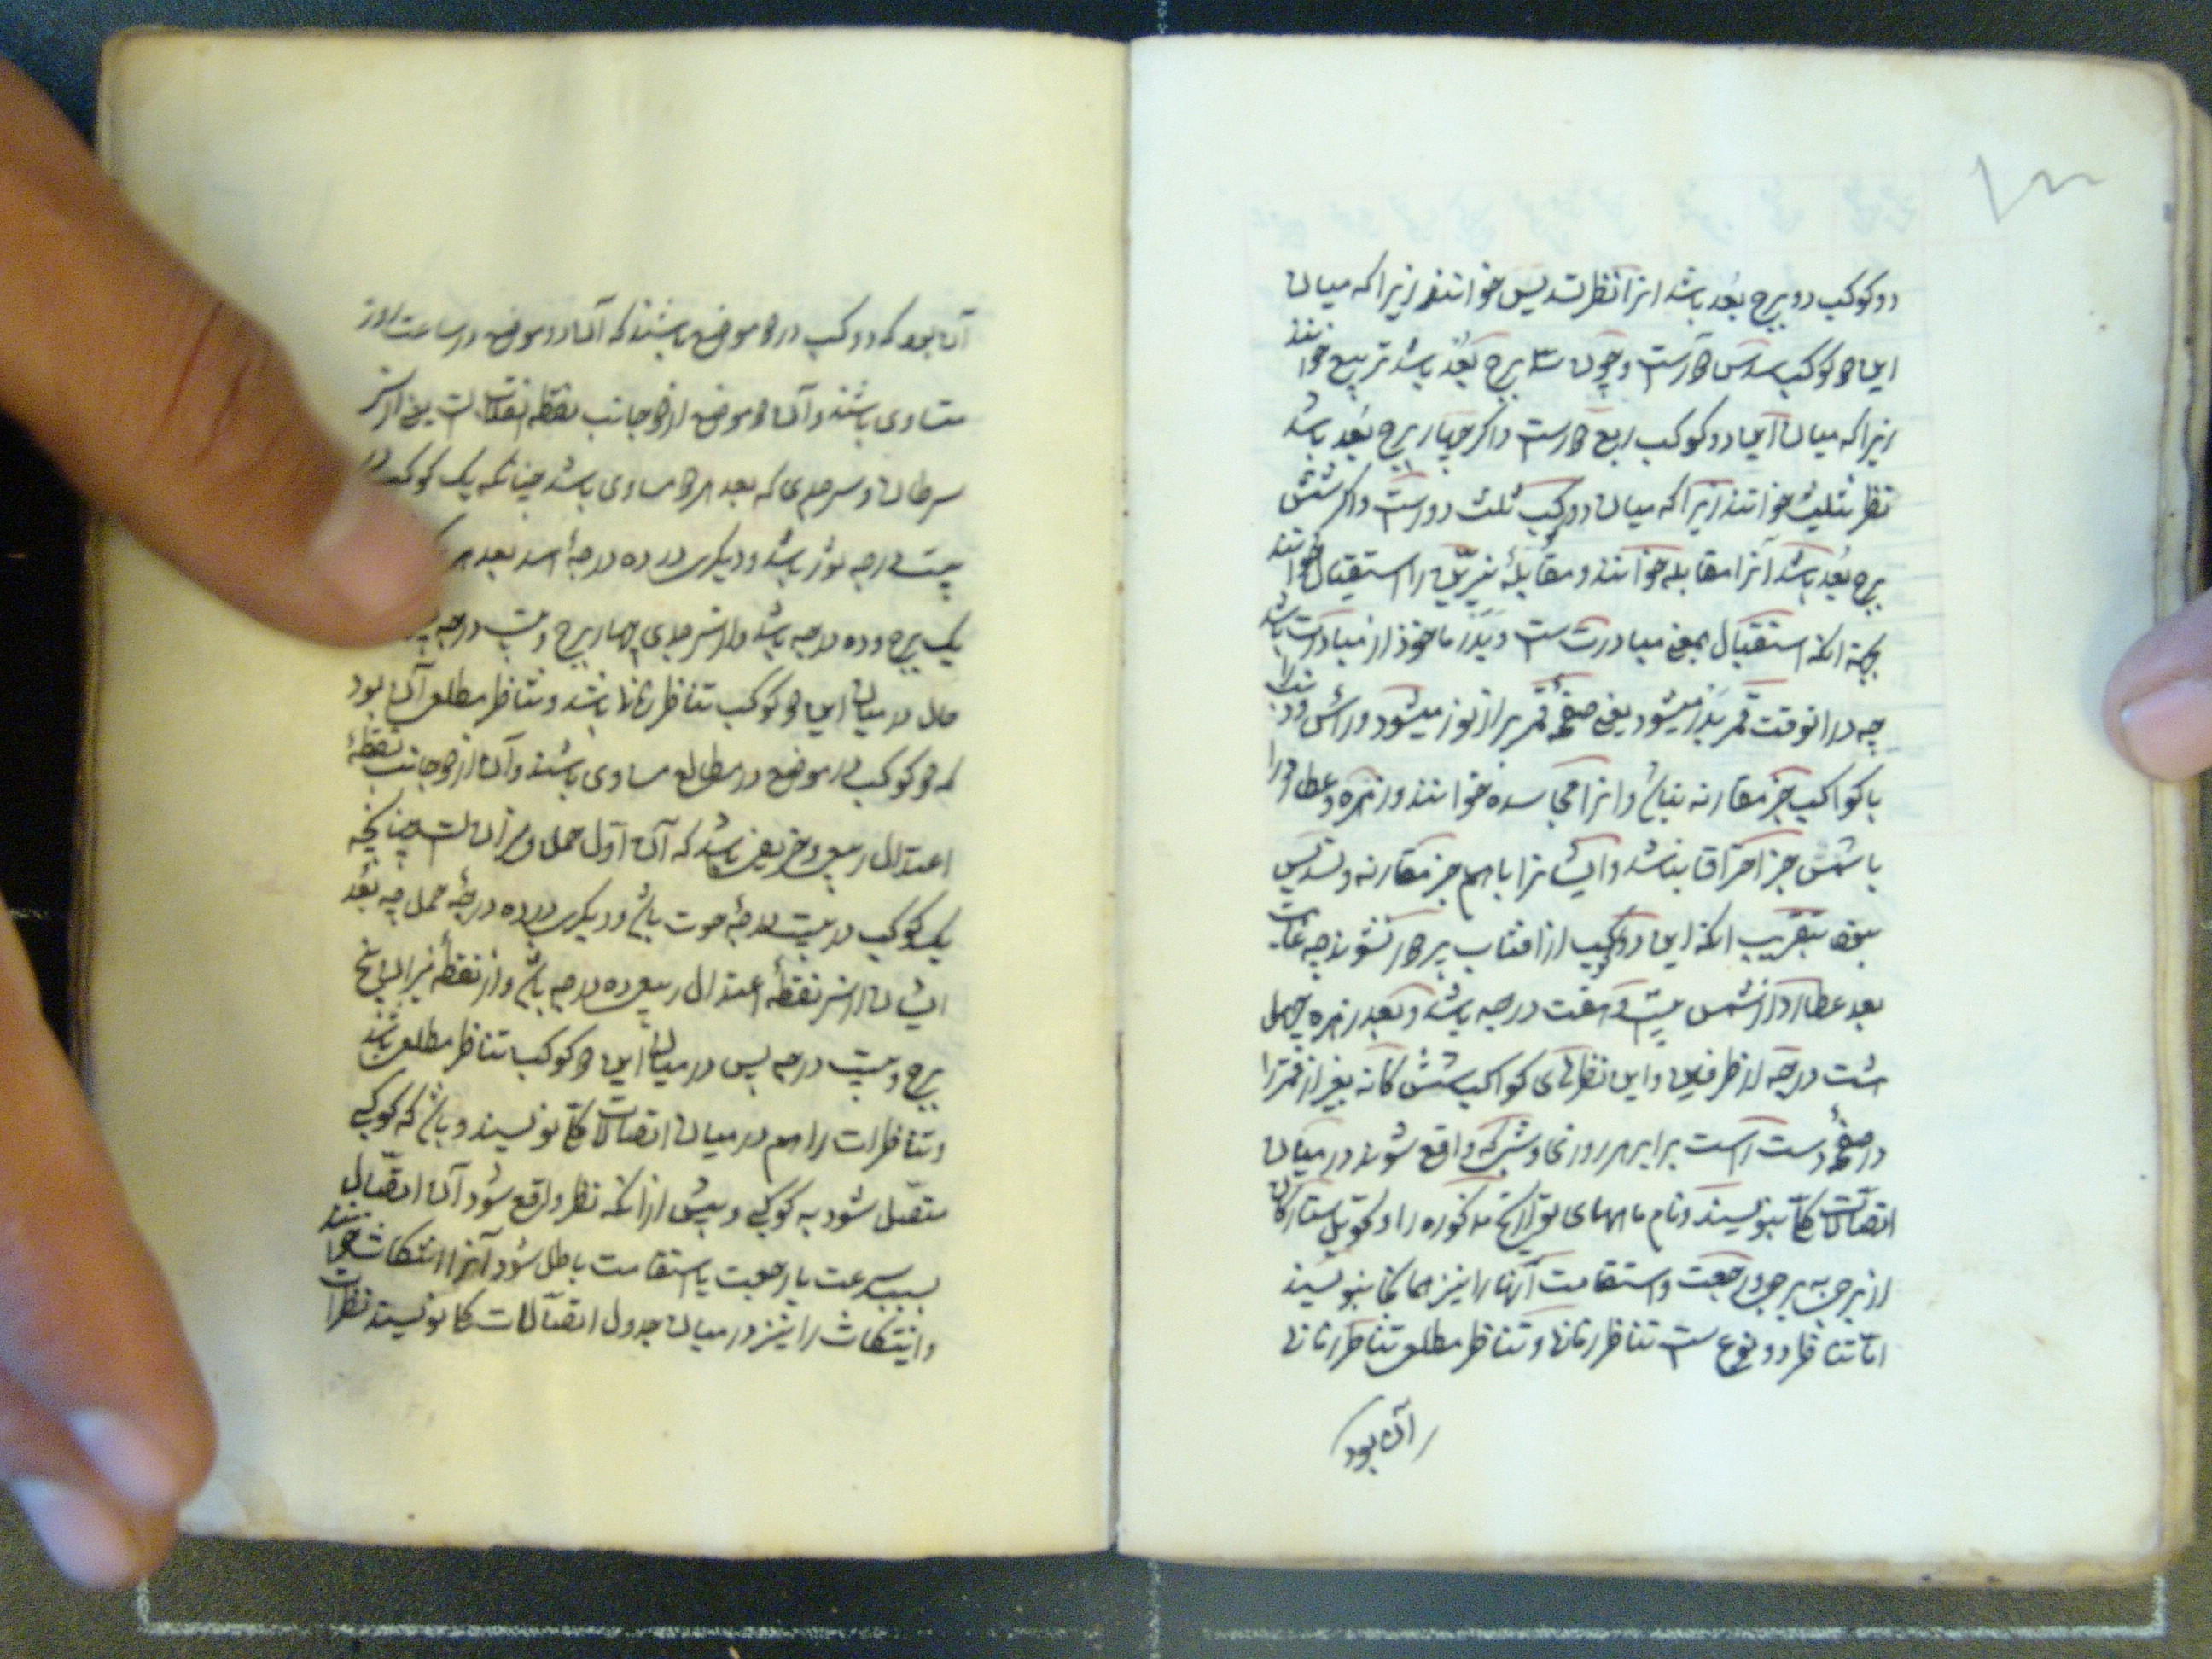 دو کوکب دو برج بُعد باشد انرا نظر تسدیس خوانند زیرا که میان
این دو کوکب سدس دورست و چون سه برج بُعد باشد تربیع خوانند
زیرا که میان این دو کوکب ربع دورست و اگر چهار برج بُعد باشد
نظر تثلیث خوانند زیرا که میان دو کوکب ثلث دورست و اگر شش
برج بُعد باشد آنرا مقابله خوانند و مقابلهٔ نیّرین را استقبال خوانند
بجهة انکه استقبال بمعنی مبادرت ست و بَدْر ماخوذ از مبادرت باشد
چه در انوقت قمر بَدْر میشود یعنی صفحهٔ قمر پر از نور میشود و راس و ذنب را
با کواکب جز مقارنه نباشد و انرا مجاسده خوانند و زهره و عطارد را
با شمس جز احتراق نباشد و ایشانرا باهم جز مقارنه و تسدیس
نبود بتقریب انکه این دو کوکب از افتاب پر دور نشوند چه غایت
بعد عطارد از شمس بیست و هفت درجه باشد و بُعد زهره چهل
هشت درجه از طرفین و این نظرهای کواکب شش کانه بغیر از قمر را
در صفحهٔ دست راست برابر هر روزی و شبی که واقع شوند در میان
اتصالات کلّی بنویسند و نام ماههای تواریخ مذکوره را و تحویل ستارکان
از برجی به برجی و رجعت و استقامت آنها را نیز همانجا بنویسند
امّا تناظر دو نوع ست تناظر زمانی و تناظر مطلعی تناظر زمانی
آن بود
آن بود که دو کوکب در دو موضع باشند که آن دو موضع در ساعت روز
متساوی باشند و آن دو موضع از دو جانب نقطه انقلاب ست یعنی از سر
سرطان و سر جدی که بعد هر دو مساوی باشد چنانکه یک کوکب در
بیست درجه ثور باشد و دیکری در ده درجهٔ اسد بعد هر
یک برج و ده درجه باشد و از سر جدی چهار برج و بیست درجه
حال در میان این دو کوکب تناظر زمانی باشد و تناظر مطلعی آن بود
که دو کوکب در دو موضع در مطالع مساوی باشند و آن از دو جانب نقطهٔ
اعتدال ربیعی و خریفی باشد که آن اوّل حمل و میزان ست چنانچه
یک کوکب در بیست درجهٔ حوت باشد و دیکری در ده درجهٔ حمل چه بُعد
ایشان از سر نقطهٔ اعتدال ربیعی ده درجه باشد و از نقطهٔ میزان پنج
برج و بیست درجه پس در میان این دو کوکب تناظر مطلعی باشد
و تناظرات را هم در میان اتصالات کلّی نویسند و باشد که کوکبی
متصّل شود به کوکبی و پیش از انکه نظر واقع شود آن اتصّال
بسبب سرعت یا رجعت یا استقامت باطل شود آنرا انتکاث خوانند
و انتکاث را نیز در میان جدول اتصالات کلی نویسند نظرات